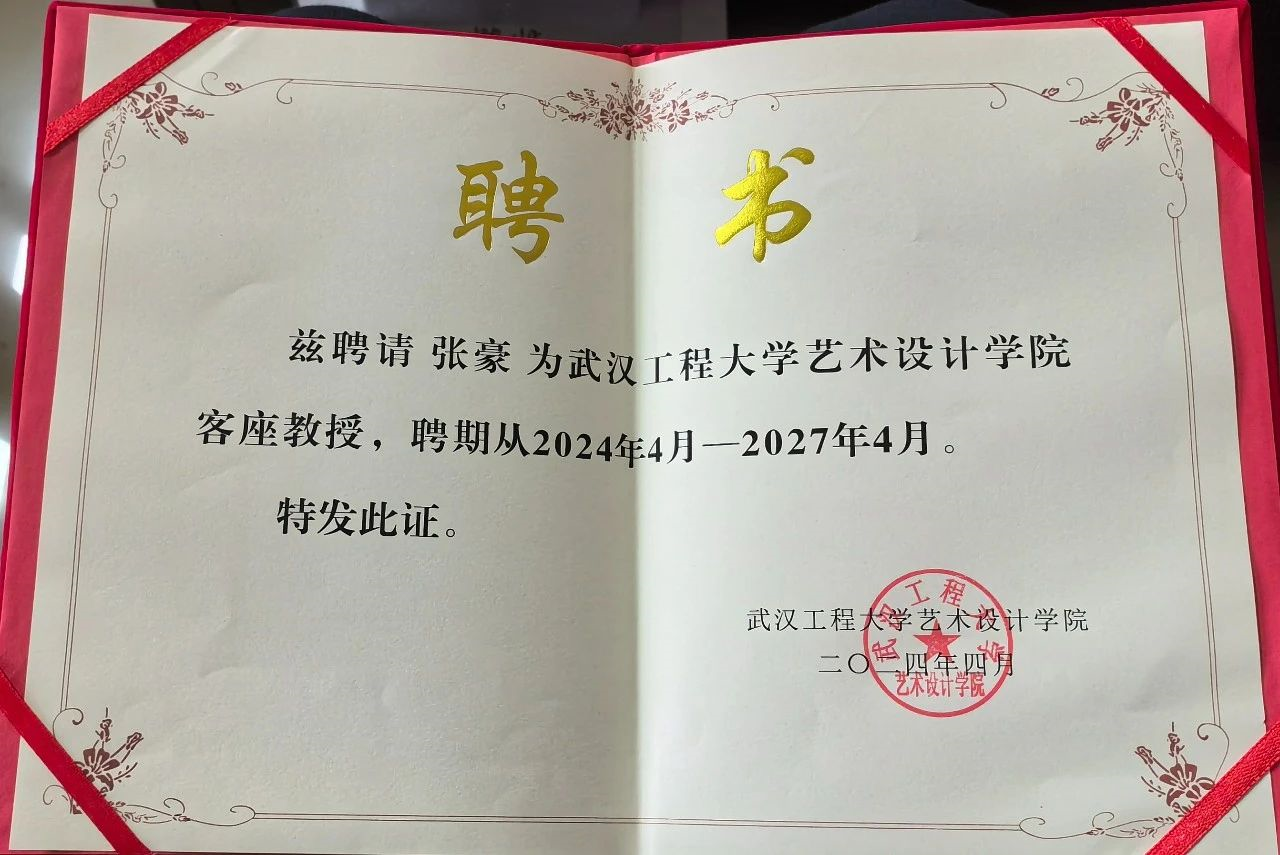 聘 书
兹聘请 张豪 为武汉工程大学艺术设计学院
客座教授，聘期从2024年4月—2027年4月。
特发此证。
武汉工程大学艺术设计学院
二〇二四年四月
武汉工程大学
艺术设计学院